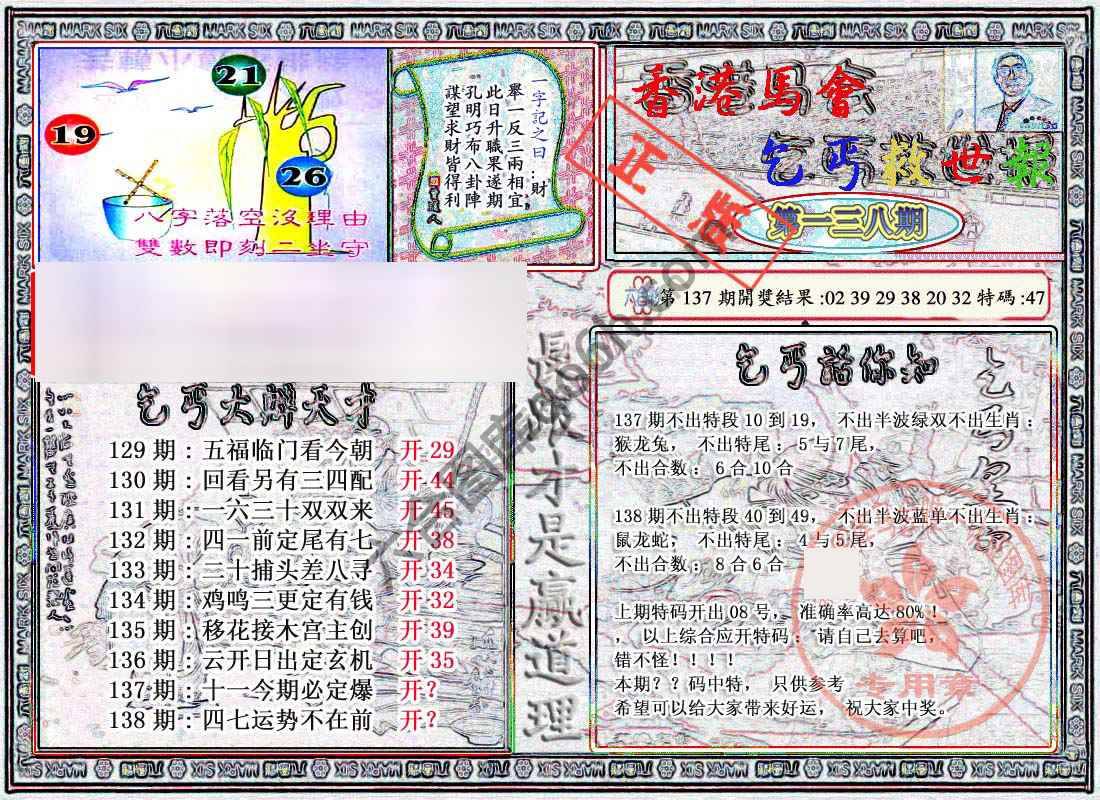 21
19
26
八字落空沒理由
雙數即刻二坐守
一字記之曰:財
舉一反三兩相宜
此日升職果逐期
孔明巧布八卦陣
謀望求財皆得利
香港馬會
乞丐救世報
第一三八期
正
第 137 期開獎結果:02 39 29 38 20 32 特碼:47
乞丐大解天才
129 期：五福临门看今朝 开 29
130 期：回看另有三四配 开 44
131 期：一六三十双双来 开 45
132 期：四一前定尾有七 开 38
133 期：三十捕头差八寻 开 34
134 期：鸡鸣三更定有钱 开 32
135 期：移花接木宫主创 开 39
136 期：云开日出定玄机 开 35
137 期：十一今期必定爆 开?
138 期：四七运势不在前 开?
才是赢道理
乞丐話你知
137 期不出特段 10 到 19， 不出半波绿双不出生肖：
猴龙兔， 不出特尾： 5 与 7 尾，
不出合数： 6 合 10 合
138 期不出特段 40 到 49， 不出半波蓝单不出生肖：
鼠龙蛇， 不出特尾： 4 与 5 尾，
不出合数： 8 合 6 合
上期特码开出 08 号， 准确率高达 80%！
， 以上综合应开特码： 请自己去算吧，
错不怪！！！！
本期？？码中特， 只供参考
希望可以给大家带来好运， 祝大家中奖。
专用章
MARK SIX